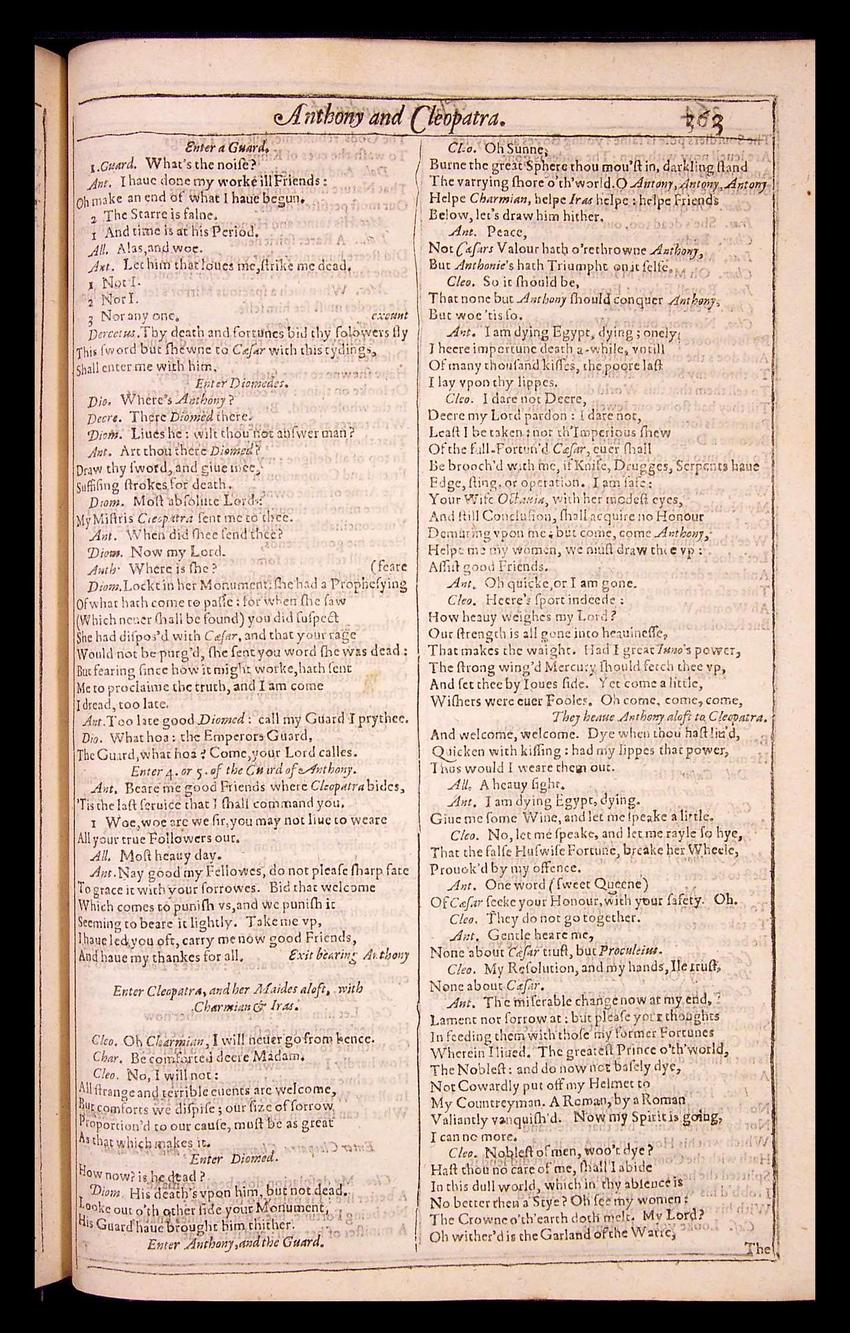 Anthony and Cleopatra. 363
Enter a Guard.
1.Guard. What's the noiſe?
Ant. I haue done my worke ill Friends:
Oh make an end of what I haue begun.
2 The Starre is falne.
1 And time is at his Period.
All. Alas, and woe.
Ant. Let him that loues me, ſtrike me dead.
1 Not I.
2 Nor I.
3 Nor any one. exeunt
Dercetus. Thy death and fortunes bid thy folowers fly
This ſword but ſhewne to Cæſar with this tydings,
Shall enter me with him.
Enter Diomedes.
Dio. Where's Anthony?
Decre. There Diomed there.
Diom. Liues he: wilt thou not anſwer man?
Ant. Art thou there Diomed?
Draw thy ſword, and giue mee,
Suffiſing ſtrokes for death.
Diom. Moſt abſolute Lord:
My Miſtris Cleopatra ſent me to thee.
Ant. When did ſhee ſend thee?
Diom. Now my Lord.
Anth. Where is ſhe? (feare
Diom. Lockt in her Monument: ſhe had a Propheſying
Of what hath come to paſſe: for when ſhe ſaw
(Which neuer ſhall be found) you did ſuſpect
She had diſpos'd with Cæſar, and that your rage
Would not be purg'd, ſhe ſent you word ſhe was dead:
But fearing ſince how it might worke, hath ſent
Me to proclaime the truth, and I am come
I dread, too late.
Ant. Too late good Diomed: call my Guard I prythee.
Dio. What hoa: the Emperors Guard,
The Guard, what hoa? Come, your Lord calles.
Enter 4. or 5. of the Guard of Anthony.
Ant. Beare me good Friends where Cleopatra bides,
'Tis the laſt ſeruice that I ſhall command you.
1 Woe, woe are we ſir, you may not liue to weare
All your true Followers out.
All. Moſt heauy day.
Ant. Nay good my Fellowes, do not pleaſe ſharp fate
To grace it with your ſorrowes. Bid that welcome
Which comes to puniſh vs, and we puniſh it
Seeming to beare it lightly. Take me vp,
I haue led you oft, carry me now good Friends,
And haue my thankes for all. Exit bearing Anthony
Enter Cleopatra, and her Maides aloft, with
Charmian & Iras.
Cleo. Oh Charmian, I will neuer go from hence.
Char. Be comforted deere Madam.
Cleo. No, I will not:
All ſtrange and terrible euents are welcome,
But comforts we diſpiſe; our ſize of ſorrow
Proportion'd to our cauſe, muſt be as great
As that which makes it.
Enter Diomed.
How now? is he dead?
Diom. His death's vpon him, but not dead.
Looke out o'th other ſide your Monument,
His Guard haue brought him thither.
Enter Anthony, and the Guard.
Cleo. Oh Sunne,
Burne the great Sphere thou mou'ſt in, darkling ſtand
The varrying ſhore o'th'world. O Antony, Antony, Antony
Helpe Charmian, helpe Iras helpe: helpe Friends
Below, let's draw him hither.
Ant. Peace,
Not Cæſars Valour hath o'rethrowne Anthony,
But Anthonie's hath Triumpht on it ſelfe.
Cleo. So it ſhould be,
That none but Anthony ſhould conquer Anthony,
But woe 'tis ſo.
Ant. I am dying Egypt, dying; onely
I heere importune death a-while, vntill
Of many thouſand kiſſes, the poore laſt
I lay vpon thy lippes.
Cleo. I dare not Deere,
Deere my Lord pardon: I dare not,
Leaſt I be taken: not th'Imperious ſhew
Of the full-Fortun'd Cæſar, euer ſhall
Be brooch'd with me, if Knife, Drugges, Serpents haue
Edge, ſting, or operation. I am ſafe:
Your Wife Octauia, with her modeſt eyes,
And ſtill Concluſion, ſhall acquire no Honour
Demuring vpon me: but come, come Anthony,
Helpe me my women, we muſt draw thee vp:
Aſſiſt good Friends.
Ant. Oh quicke, or I am gone.
Cleo. Heere's ſport indeede:
How heauy weighes my Lord?
Our ſtrength is all gone into heauineſſe,
That makes the waight. Had I great Iuno's power,
The ſtrong wing'd Mercury ſhould fetch thee vp,
And ſet thee by Ioues ſide. Yet come a little,
Wiſhers were euer Fooles. Oh come, come, come,
They heaue Anthony aloft to Cleopatra.
And welcome, welcome. Dye when thou haſt liu'd,
Quicken with kiſſing: had my lippes that power,
Thus would I weare them out.
All. A heauy ſight.
Ant. I am dying Egypt, dying.
Giue me ſome Wine, and let me ſpeake a little.
Cleo. No, let me ſpeake, and let me rayle ſo hye,
That the falſe Huſwife Fortune, breake her Wheele,
Prouok'd by my offence.
Ant. One word (ſweet Queene)
Of Cæſar ſeeke your Honour, with your ſafety. Oh.
Cleo. They do not go together.
Ant. Gentle heare me,
None about Cæſar truſt, but Proculeius.
Cleo. My Reſolution, and my hands, Ile truſt,
None about Cæſar.
Ant. The miſerable change now at my end,
Lament nor ſorrow at: but pleaſe your thoughts
In feeding them with thoſe my former Fortunes
Wherein I liued. The greateſt Prince o'th'world,
The Nobleſt: and do now not baſely dye,
Not Cowardly put off my Helmet to
My Countreyman. A Roman, by a Roman
Valiantly vanquiſh'd. Now my Spirit is going,
I can no more.
Cleo. Nobleſt of men, woo't dye?
Haſt thou no care of me, ſhall I abide
In this dull world, which in thy abſence is
No better then a Stye? Oh ſee my women:
The Crowne o'th'earth doth melt. My Lord?
Oh wither'd is the Garland of the Warre,
The